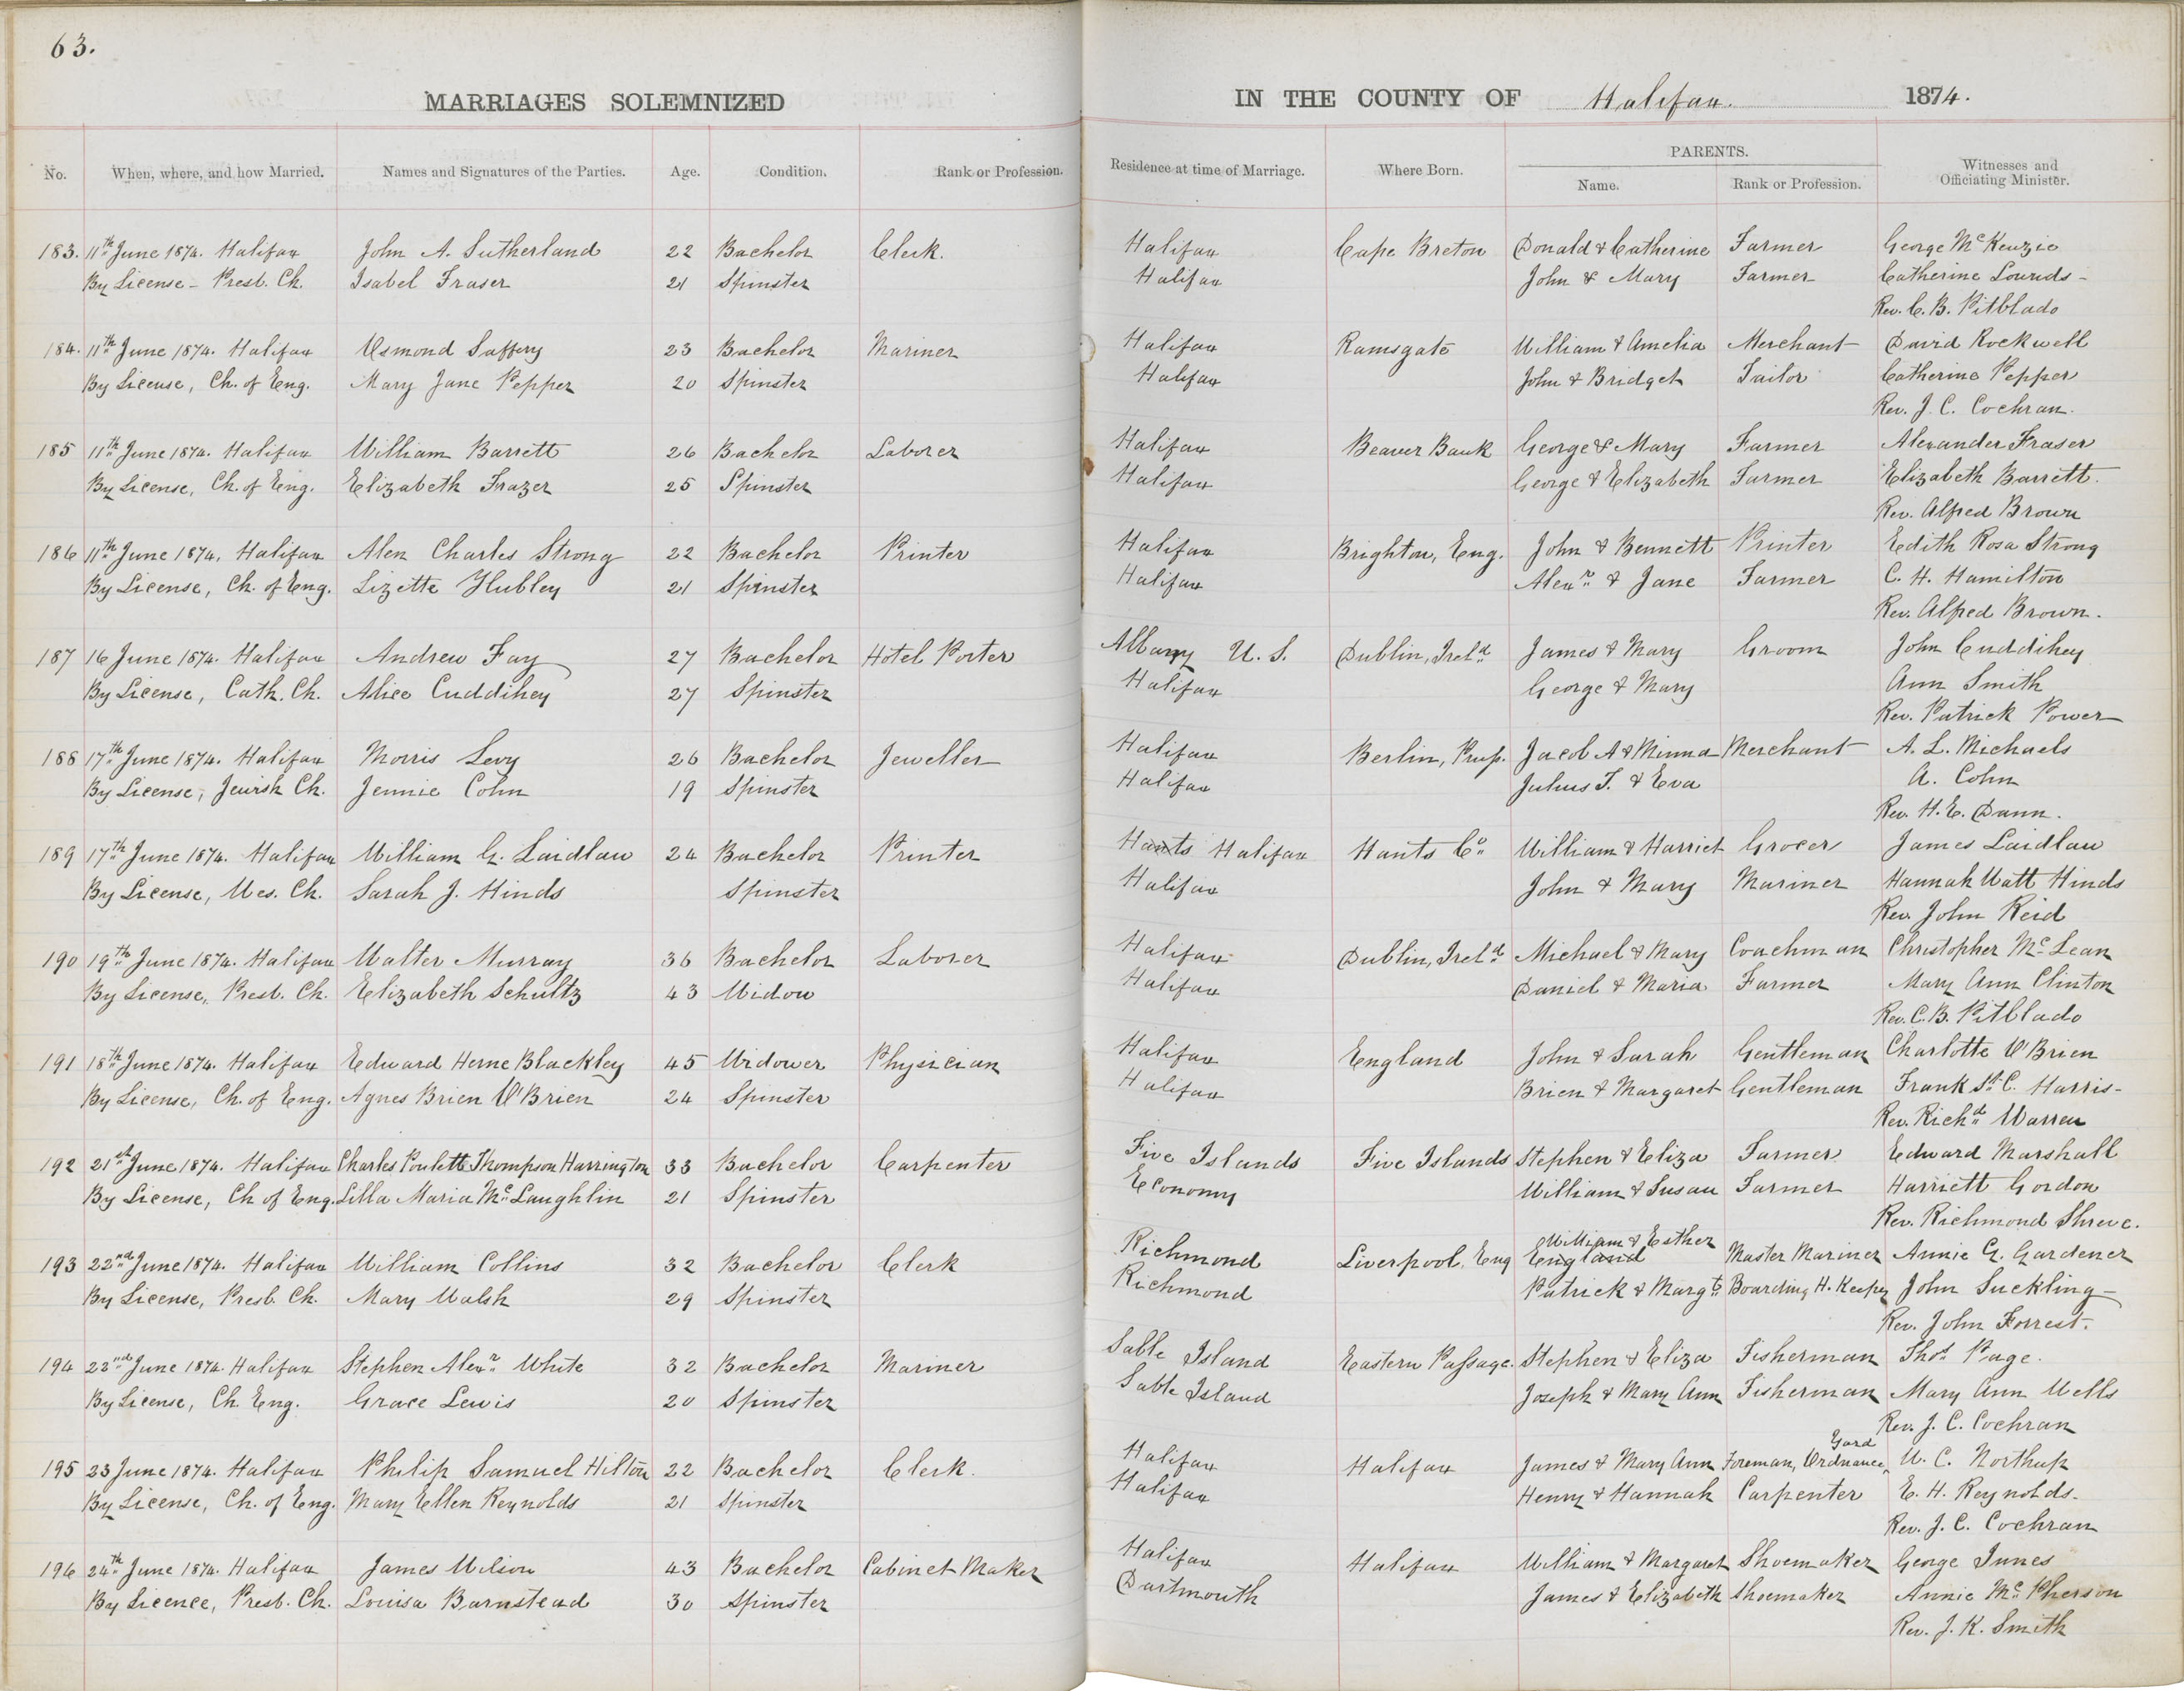 63.
MARRIAGES SOLEMNIZED IN THE COUNTY OF Halifax. 1874.
No. When, where, and how Married. Names and Signatures of the Parties. Age. Condition. Rank or Profession. Residence at time of Marriage. Where Born. PARENTS. Name. Rank or Profession. Witnesses and Officiating Minister.
183. 11th June 1874. Halifax John A. Sutherland 22 Bachelor Clerk. Halifax Cape Breton Donald & Catherine Farmer George McKenzie
By License - Presb. Ch. Isabel Fraser 21 Spinster Halifax John & Mary Farmer Catherine Lownds -
Rev. C. B. Pitblado
184. 11th June 1874. Halifax Osmond Saffery 23 Bachelor Mariner Halifax Ramsgate William & Amelia Merchant David Rockwell
By License, Ch. of Eng. Mary Jane Pepper 20 Spinster Halifax John & Bridget Tailor Catherine Pepper
Rev. J. C. Cochran.
185 11th June 1874. Halifax William Barrett 26 Bachelor Laborer Halifax Beaver Bank George & Mary Farmer Alexander Fraser
By License, Ch. of Eng. Elizabeth Frazer 25 Spinster Halifax George & Elizabeth Farmer Elizabeth Barrett.
Rev. Alfred Brown
186 11th June 1874, Halifax Alex Charles Strong 22 Bachelor Printer Halifax Brighton, Eng. John & Bennett Printer Edith Rosa Strong
By License, Ch. of Eng. Lizette Hubley 21 Spinster Halifax Alexr. & Jane Farmer C. H. Hamilton
Rev. Alfred Brown.
187 16 June 1874. Halifax Andrew Fay 27 Bachelor Hotel Porter Albany U. S. Dublin, Ireld. James & Mary Groom John Cuddihey
By License, Cath. Ch. Alice Cuddihey 27 Spinster Halifax George & Mary Ann Smith
Rev. Patrick Power
188 17th June 1874. Halifax Morris Levy 26 Bachelor Jeweller Halifax Berlin, Prus. Jacob A & Minna Merchant A. L. Michaels
By License, Jewish Ch. Jennie Cohn 19 Spinster Halifax Julius T. & Eva A. Cohn
Rev. H. E. Dann.
189 17th June 1874. Halifax William G. Laidlaw 24 Bachelor Printer Hants Halifax Hants Co. William & Harriet Grocer James Laidlaw
By License, Wes. Ch. Sarah J. Hinds Spinster Halifax John & Mary Mariner Hannah Watt Hinds
Rev. John Reid
190 19th June 1874. Halifax Walter Murray 36 Bachelor Laborer Halifax Dublin, Ireld. Michael & Mary Coachman Christopher McLean
By License, Presb. Ch. Elizabeth Schultz 43 Widow Halifax Daniel & Maria Farmer Mary Ann Clinton
Rev. C. B. Pitblado
191 18th June 1874. Halifax Edward Herne Blackley 45 Widower Physician Halifax England John & Sarah Gentleman Charlotte O'Brien
By License, Ch. of Eng. Agnes Brien O'Brien 24 Spinster Halifax Brien & Margaret Gentleman Frank St. C. Harris -
Rev. Richd. Warren
192 21st June 1874. Halifax Charles Poulett Thompson Harrington 33 Bachelor Carpenter Five Islands Five Islands Stephen & Eliza Farmer Edward Marshall
By License, Ch of Eng. Lilla Maria McLaughlin 21 Spinster Economy William & Susan Farmer Harriett Gordon
Rev. Richmond Shreve.
193 22nd June 1874. Halifax William Collins 32 Bachelor Clerk Richmond Liverpool, Eng England William & Esther Master Mariner Annie G. Gardener
By License, Presb. Ch. Mary Walsh 29 Spinster Richmond Patrick & Margt. Boarding H. Keeper John Suckling -
Rev. John Forrest.
194 22nd June 1874. Halifax Stephen Alexr. White 32 Bachelor Mariner Sable Island Eastern Passage. Stephen & Eliza Fisherman Thos. Page.
By License, Ch. Eng. Grace Lewis 20 Spinster Sable Island Joseph & Mary Ann Fisherman Mary Ann Wells
Rev. J. C. Cochran
195 23 June 1874. Halifax Philip Samuel Hilton 22 Bachelor Clerk. Halifax Halifax James & Mary Ann Foreman, Ordnance Yard W. C. Northup
By License, Ch. of Eng. Mary Ellen Reynolds 21 Spinster Halifax Henry & Hannah Carpenter E. H. Reynolds.
Rev. J. C. Cochran
196 24th June 1874. Halifax James Wilson 43 Bachelor Cabinet Maker Halifax Halifax William & Margaret Shoemaker George Innes
By Licence, Presb. Ch. Louisa Barnstead 30 Spinster Dartmouth James & Elizabeth Shoemaker Annie McPherson
Rev. J. K. Smith